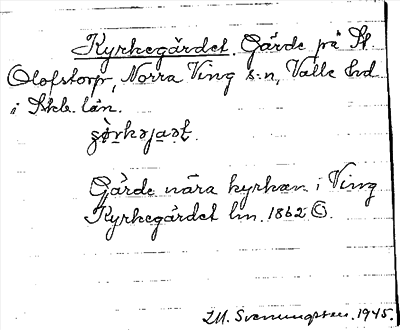 Kyrkegärdet. Gärde på St
Olofstorp, Norra Ving s:n, Valle hd
i Skb. län.
Gärde nära kyrkan i Ving
Kyrkegärdet lm. 1862 ©.
Svenungsson. 1945.